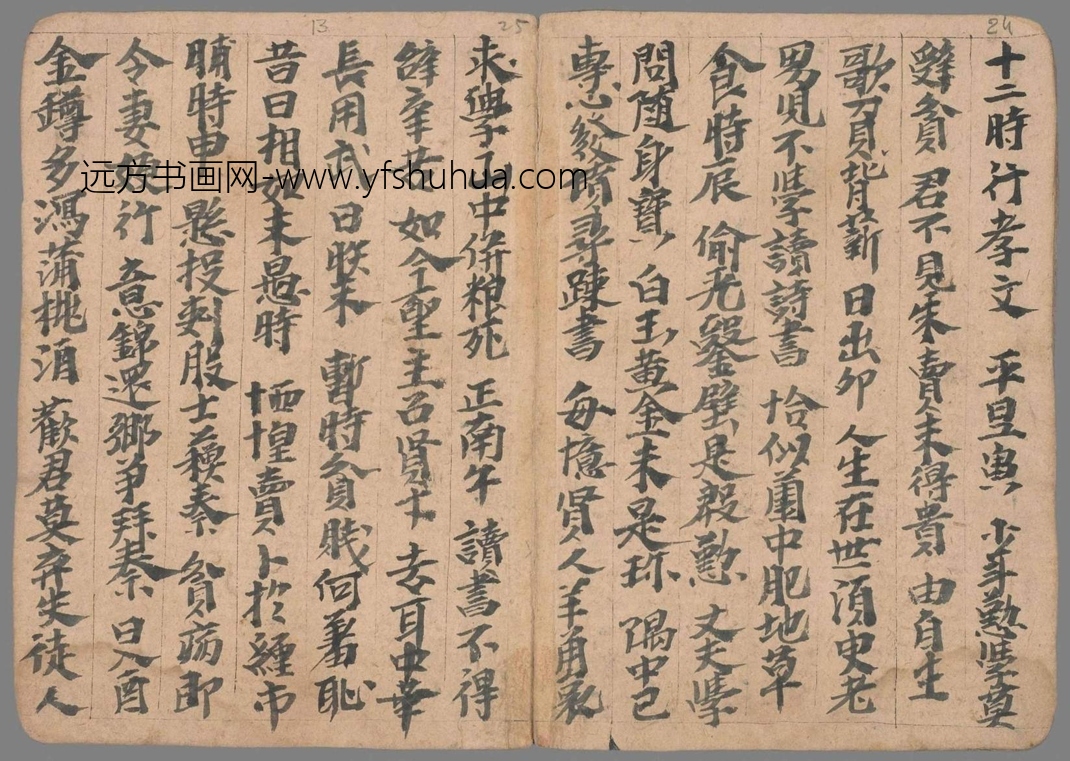 十二時行孝文 平旦寅 少年懃學莫
辝貧 君不見朱賣未得貴 由自生
歌可負背薪 日出卯 人生在世須臾老
男兒不學讀詩書 恰似園中肥地草
食時辰 偷光鑿壁是殷懃 丈夫學
問随身寶 白玉黄金未是珎 隅中巳
專心發憤尋踈書 每憶賢人羊角哀
求學山中併粮死 正南午 讀書不得
辝辛苦 如今聖主召賢才 去耳中華
長用武 日昳未 暫時貧賎何羞恥
昔日相如未愚時 恓惶賣卜於纏市
晡時申 懸投刺股士蘓秦 貧病即
令妻嫂行 意錦還鄉爭拜秦 日入酉
金罇多瀉蒲桃酒 歡君莫弃失徒人
24
25
13
远方书画网-www.yfshuhua.com